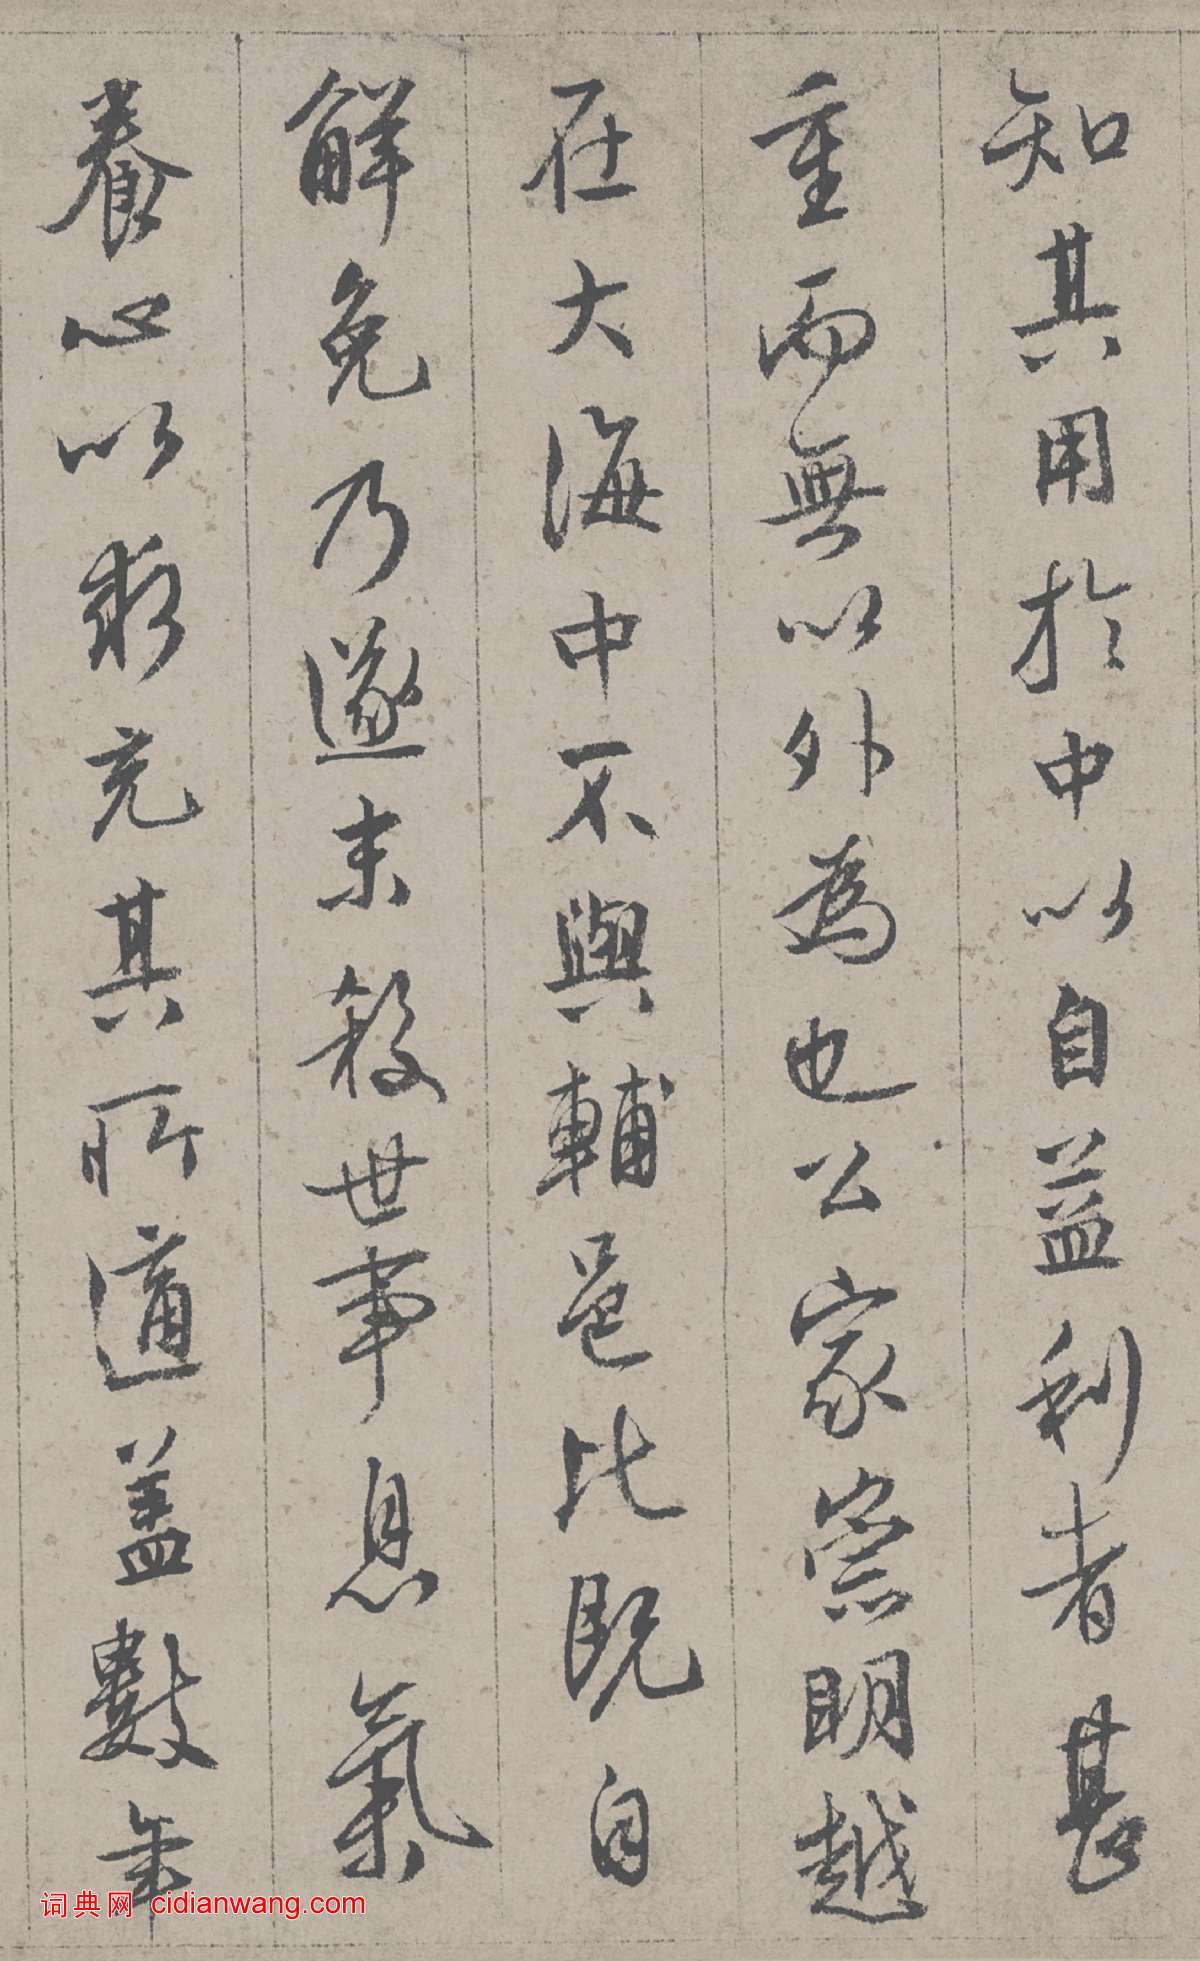 知其用於中以自益利者甚
重而無以外為也公家崇明越
在大海中不與輔邑比既自
解免乃遂末殺世事息氣
養心以求充其所適蓋數年
词典网 cidianwang.com